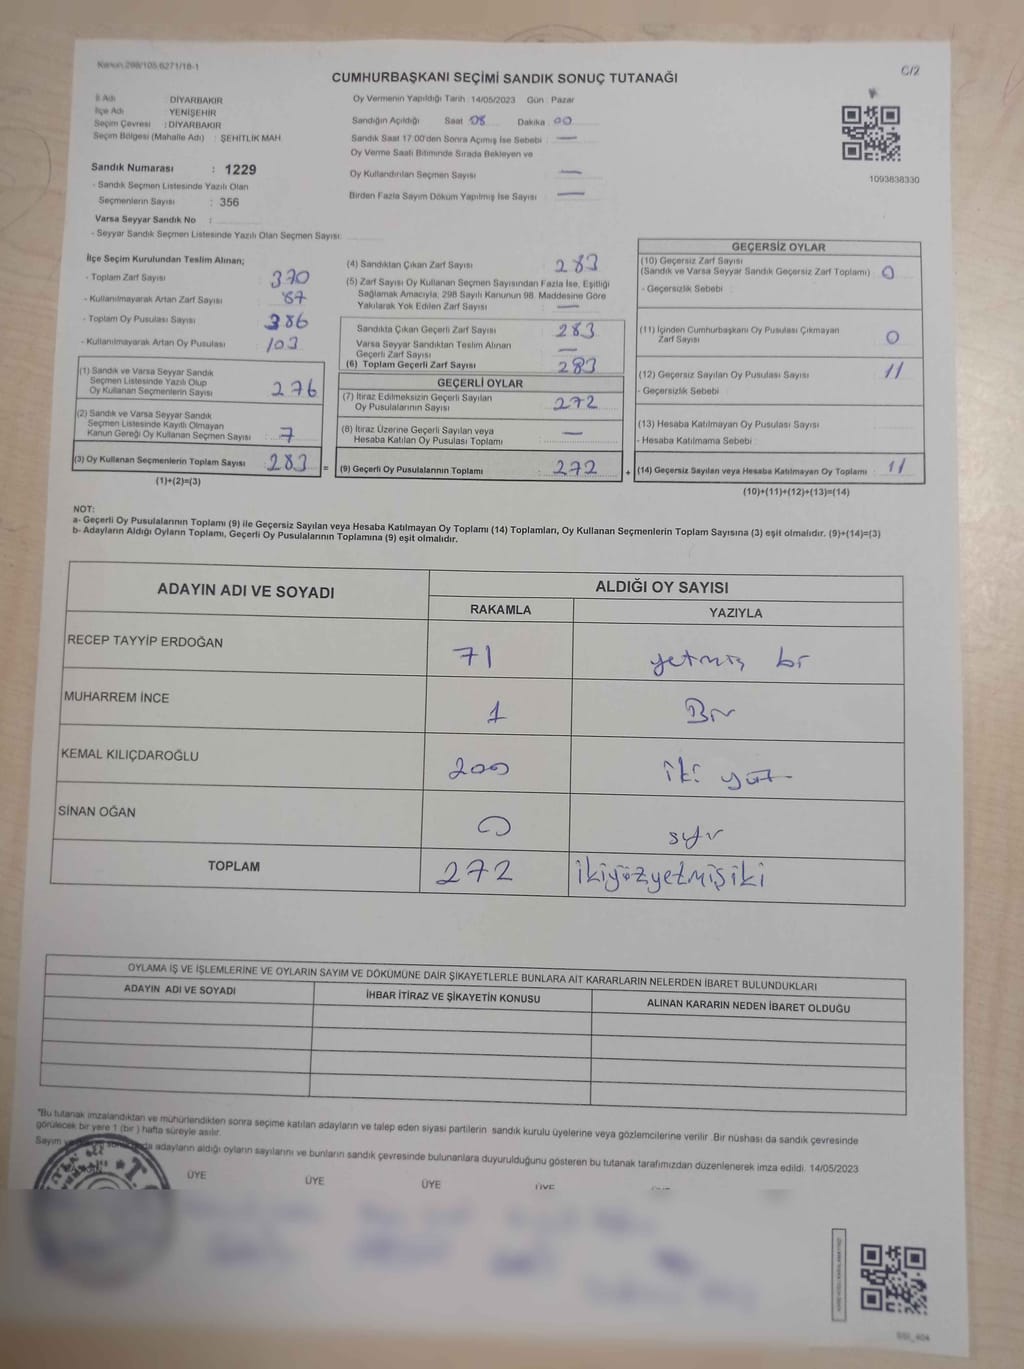 Kanun:298/105,6271/18-1
C/2
CUMHURBAŞKANI SEÇİMİ SANDIK SONUÇ TUTANAĞI
İl Adı DİYARBAKIR
İlçe Adı YENİŞEHİR
Seçim Çevresi : DİYARBAKIR
Seçim Bölgesi (Mahalle Adı) : ŞEHİTLİK MAH.
Sandık Numarası : 1229
- Sandık Seçmen Listesinde Yazılı Olan
Seçmenlerin Sayısı : 356
Varsa Seyyar Sandık No :
- Seyyar Sandık Seçmen Listesinde Yazılı Olan Seçmen Sayısı:
Oy Vermenin Yapıldığı Tarih 14/05/2023 Gün : Pazar
Sandığın Açıldığı Saat 08 Dakika 00
Sandık Saat 17:00'den Sonra Açımış İse Sebebi : —
Oy Verme Saati Bitiminde Sırada Bekleyen ve
Oy Kullandırılan Seçmen Sayısı —
Birden Fazla Sayım Döküm Yapılmış İse Sayısı —
1093838330
İlçe Seçim Kurulundan Teslim Alınan;
- Toplam Zarf Sayısı : 370
- Kullanılmayarak Artan Zarf Sayısı : 87
- Toplam Oy Pusulası Sayısı : 386
- Kullanılmayarak Artan Oy Pusulası : 103
(1) Sandık ve Varsa Seyyar Sandık
Seçmen Listesinde Yazılı Olup
Oy Kullanan Seçmenlerin Sayısı : 276
(2) Sandık ve Varsa Seyyar Sandık
Seçmen Listesinde Kayıtlı Olmayan
Kanun Gereği Oy Kullanan Seçmen Sayısı : 7
(3) Oy Kullanan Seçmenlerin Toplam Sayısı : 283
(1)+(2)=(3)
=
(4) Sandıktan Çıkan Zarf Sayısı 283
(5) Zarf Sayısı Oy Kullanan Seçmen Sayısından Fazla İse, Eşitliği
Sağlamak Amacıyla, 298 Sayılı Kanunun 98. Maddesine Göre
Yakılarak Yok Edilen Zarf Sayısı —
Sandıkta Çıkan Geçerli Zarf Sayısı : 283
Varsa Seyyar Sandıktan Teslim Alınan
Geçerli Zarf Sayısı —
(6) Toplam Geçerli Zarf Sayısı : 283
GEÇERLİ OYLAR
(7) İtiraz Edilmeksizin Geçerli Sayılan
Oy Pusulalarının Sayısı : 272
(8) İtiraz Üzerine Geçerli Sayılan veya
Hesaba Katılan Oy Pusulası Toplamı —
(9) Geçerli Oy Pusulalarının Toplamı : 272
+
GEÇERSİZ OYLAR
(10) Geçersiz Zarf Sayısı
(Sandık ve Varsa Seyyar Sandık Geçersiz Zarf Toplamı) : 0
- Geçersizlik Sebebi :
(11) İçinden Cumhurbaşkanı Oy Pusulası Çıkmayan
Zarf Sayısı 0
(12) Geçersiz Sayılan Oy Pusulası Sayısı 11
- Geçersizlik Sebebi
(13) Hesaba Katılmayan Oy Pusulası Sayısı
- Hesaba Katılmama Sebebi
(14) Geçersiz Sayılan veya Hesaba Katılmayan Oy Toplamı : 11
(10)+(11)+(12)+(13)=(14)
NOT:
a- Geçerli Oy Pusulalarının Toplamı (9) ile Geçersiz Sayılan veya Hesaba Katılmayan Oy Toplamı (14) Toplamları, Oy Kullanan Seçmenlerin Toplam Sayısına (3) eşit olmalıdır. (9)+(14)=(3)
b- Adayların Aldığı Oyların Toplamı, Geçerli Oy Pusulalarının Toplamına (9) eşit olmalıdır.
ADAYIN ADI VE SOYADI ALDIĞI OY SAYISI
RAKAMLA YAZIYLA
RECEP TAYYİP ERDOĞAN 71 yetmiş bir
MUHARREM İNCE 1 Bir
KEMAL KILIÇDAROĞLU 200 iki yüz
SİNAN OĞAN 0 sıfır
TOPLAM 272 ikiyüzyetmişiki
OYLAMA İŞ VE İŞLEMLERİNE VE OYLARIN SAYIM VE DÖKÜMÜNE DAİR ŞİKAYETLERLE BUNLARA AİT KARARLARIN NELERDEN İBARET BULUNDUKLARI
ADAYIN ADI VE SOYADI İHBAR İTİRAZ VE ŞİKAYETİN KONUSU ALINAN KARARIN NEDEN İBARET OLDUĞU
*Bu tutanak imzalandıktan ve mühürlendikten sonra seçime katılan adayların ve talep eden siyasi partilerin sandık kurulu üyelerine veya gözlemcilerine verilir. Bir nüshası da sandık çevresinde
görülecek bir yere 1 (bir ) hafta süreyle asılır.
Sayım adayların aldığı oyların sayılarını ve bunların sandık çevresinde bulunanlara duyurulduğunu gösteren bu tutanak tarafımızdan düzenlenerek imza edildi. 14/05/2023
ÜYE ÜYE ÜYE ÜYE